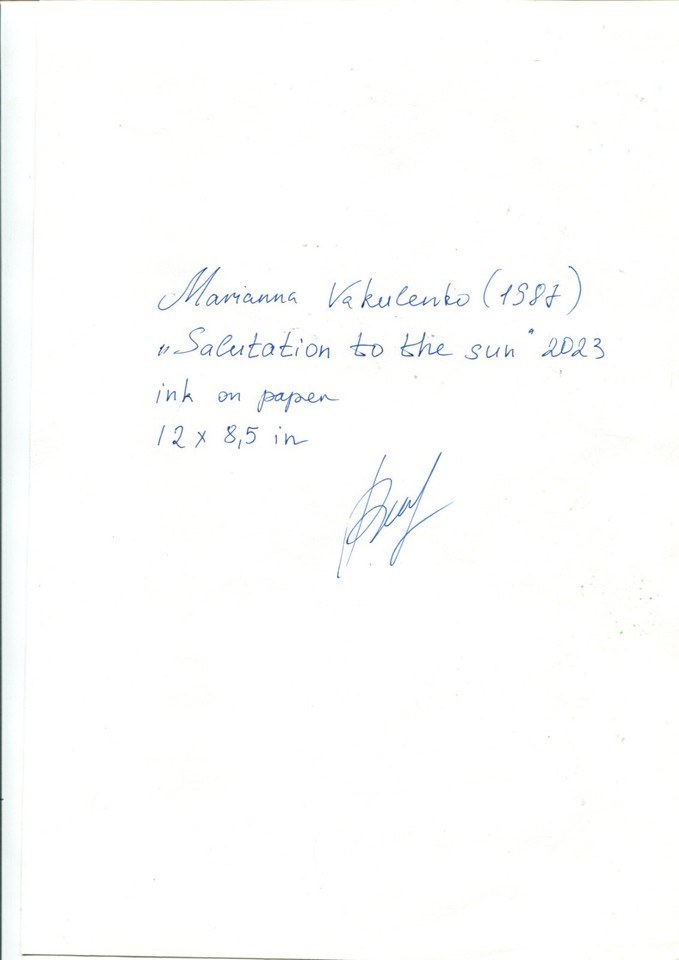 Marianna Vakulenko (1987)
„Salutation to the sun" 2023
ink on paper
12 x 8,5 in